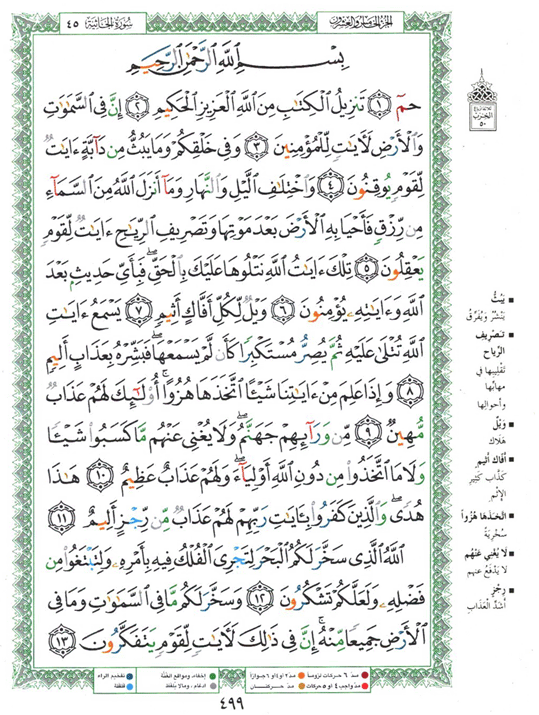 ٤٥
سُورَةُ الجَاثِيَةِ
الجُزْءُ الخَامِسُ وَالعِشْرُونَ
بِسْمِ ٱللَّهِ ٱلرَّحْمَٰنِ ٱلرَّحِيمِ
حمٓ ١ تَنزِيلُ ٱلْكِتَٰبِ مِنَ ٱللَّهِ ٱلْعَزِيزِ ٱلْحَكِيمِ ٢ إِنَّ فِى ٱلسَّمَٰوَٰتِ
وَٱلْأَرْضِ لَأَيَٰتٍ لِّلْمُؤْمِنِينَ ٣ وَفِى خَلْقِكُمْ وَمَا يَبُثُّ مِن دَآبَّةٍ ءَايَٰتٌ
لِّقَوْمٍ يُوقِنُونَ ٤ وَٱخْتِلَٰفِ ٱلَّيْلِ وَٱلنَّهَارِ وَمَآ أَنزَلَ ٱللَّهُ مِنَ ٱلسَّمَآءِ
مِن رِّزْقٍ فَأَحْيَا بِهِ ٱلْأَرْضَ بَعْدَ مَوْتِهَا وَتَصْرِيفِ ٱلرِّيَٰحِ ءَايَٰتٌ لِّقَوْمٍ
يَعْقِلُونَ ٥ تِلْكَ ءَايَٰتُ ٱللَّهِ نَتْلُوهَا عَلَيْكَ بِٱلْحَقِّ ۖ فَبِأَىِّ حَدِيثٍۭ بَعْدَ
ٱللَّهِ وَءَايَٰتِهِۦ يُؤْمِنُونَ ٦ وَيْلٌ لِّكُلِّ أَفَّاكٍ أَثِيمٍ ٧ يَسْمَعُ ءَايَٰتِ
ٱللَّهِ تُتْلَىٰ عَلَيْهِ ثُمَّ يُصِرُّ مُسْتَكْبِرًا كَأَن لَّمْ يَسْمَعْهَا ۖ فَبَشِّرْهُ بِعَذَابٍ أَلِيمٍ
٨ وَإِذَا عَلِمَ مِنْ ءَايَٰتِنَا شَيْـًٔا ٱتَّخَذَهَا هُزُوًا ۚ أُو۟لَٰٓئِكَ لَهُمْ عَذَابٌ
مُّهِينٌ ٩ مِّن وَرَآئِهِمْ جَهَنَّمُ ۖ وَلَا يُغْنِى عَنْهُم مَّا كَسَبُوا۟ شَيْـًٔا
وَلَا مَا ٱتَّخَذُوا۟ مِن دُونِ ٱللَّهِ أَوْلِيَآءَ ۖ وَلَهُمْ عَذَابٌ عَظِيمٌ ١٠ هَٰذَا
هُدًى ۖ وَٱلَّذِينَ كَفَرُوا۟ بِـَٔايَٰتِ رَبِّهِمْ لَهُمْ عَذَابٌ مِّن رِّجْزٍ أَلِيمٌ ١١
ٱللَّهُ ٱلَّذِى سَخَّرَ لَكُمُ ٱلْبَحْرَ لِتَجْرِىَ ٱلْفُلْكُ فِيهِ بِأَمْرِهِۦ وَلِتَبْتَغُوا۟ مِن
فَضْلِهِۦ وَلَعَلَّكُمْ تَشْكُرُونَ ١٢ وَسَخَّرَ لَكُم مَّا فِى ٱلسَّمَٰوَٰتِ وَمَا فِى
ٱلْأَرْضِ جَمِيعًا مِّنْهُ ۚ إِنَّ فِى ذَٰلِكَ لَأَيَٰتٍ لِّقَوْمٍ يَتَفَكَّرُونَ ١٣
الحزب
٥٠
يَبُثُّ
يَنْشُرُ وَيُفَرِّقُ
تصْرِيفِ
الرِّيَاحِ
تَقْلِيبِهَا في
مهابِّها
وأحوالِها
وَيْلٌ
هَلاك
أفّاكٍ أثيمٍ
كَذَّابٍ كَثِيرِ
الإثْمِ
اتَّخَذَهَا هُزُواً
سُخْرِيَةً
لا يُغْنِي عَنْهُم
لا يَدْفَعُ عنهم
رِجْزٍ
أشَدِّ العَذَابِ
مدّ ٦ حركات لزوماً
مدّ ٢ أو ٤ أو ٦ جوازاً
إخفاء، ومواقع الغُنَّة
تفخيم الراء
مدّ واجب ٤ أو ٥ حركات
مدّ حركتان
ادغام، ومالا يُلفظ
قلقلة
٤٩٩